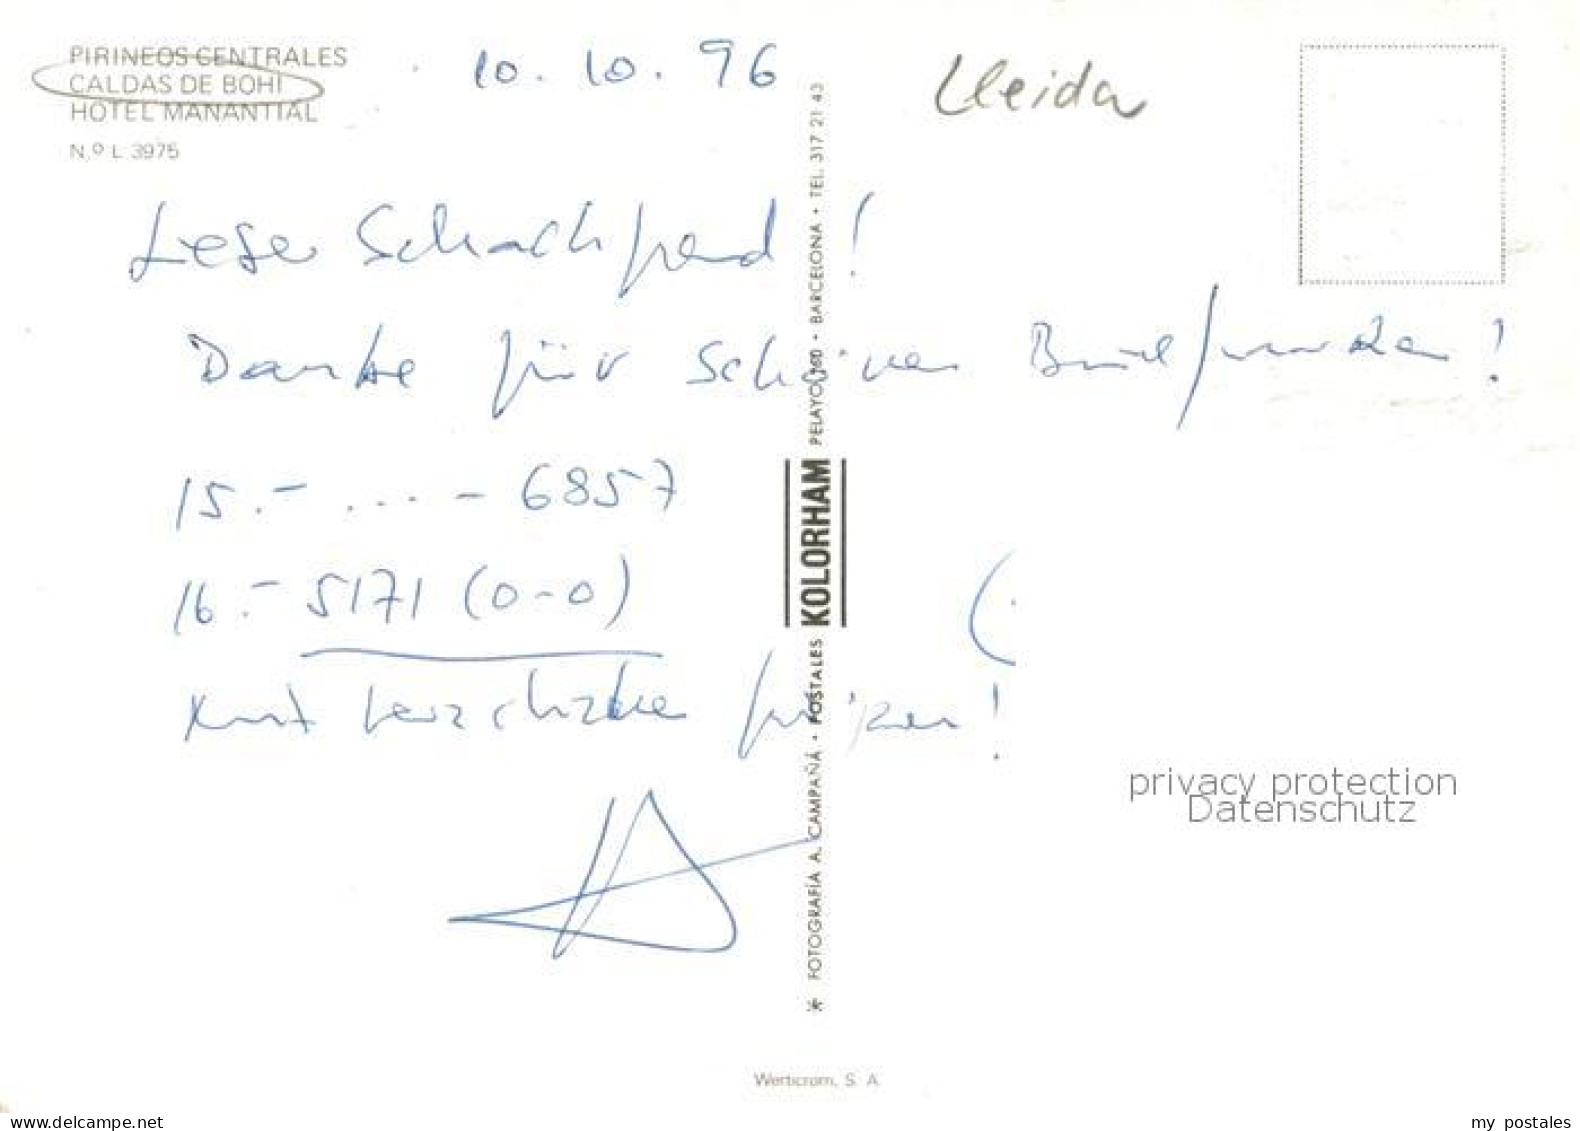 PIRINEOS CENTRALES
CALDAS DE BOHI
HOTEL MANANTIAL
N.º L 3975
10. 10. 96
Lleida
Schachfreund !
Danke für schönen Briefmarken !
15.- ... - 6857
16.- 5171 (0-0)
Mit herzlichen !
✶ FOTOGRAFÍA A. CAMPAÑÁ • POSTALES KOLORHAM PELAYO • BARCELONA • TEL. 317 21 43
privacy protection
Datenschutz
Werticrom, S. A.
www.delcampe.net
my postales